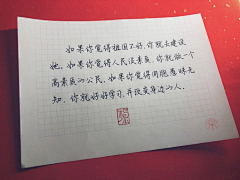 如果你觉得祖国不好,你就去建设
她。如果你觉得人民没素质,你就做一个
高素质的公民。如果你觉得同胞愚昧无
知,你就好好学习,并改变身边的人。